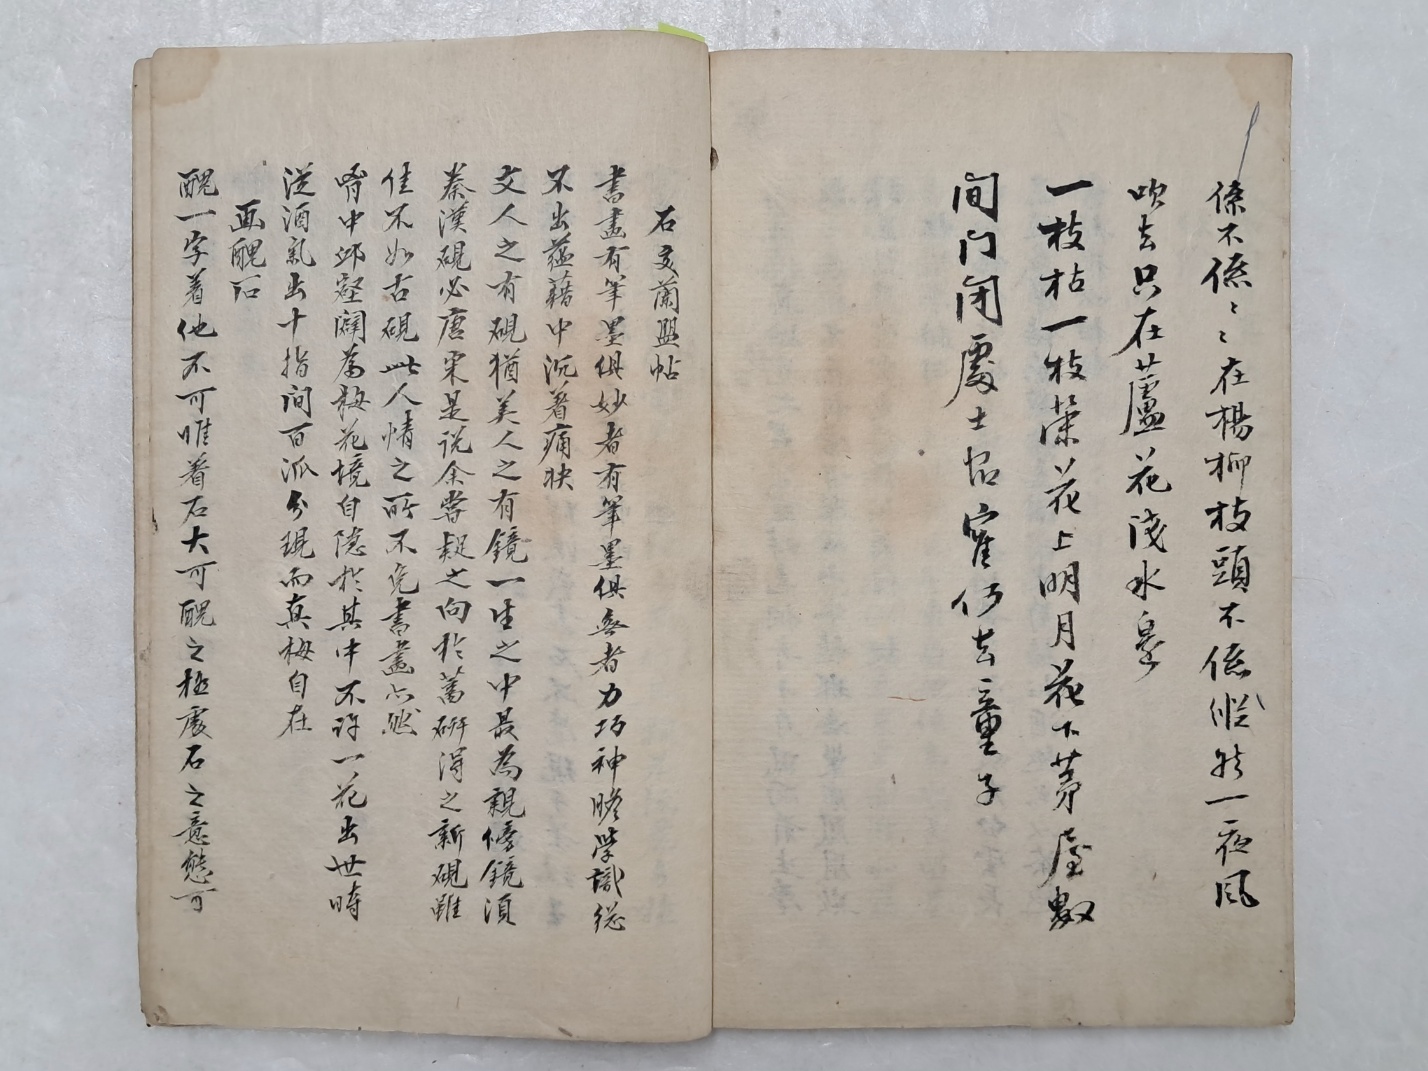 係不係〻〻在楊柳枝頭不係縱然一夜風
吹去只在蘆花淺水
一枝枯一枝榮花上明月花下茅屋數
間门闭處士招寉仍去童子
石交蘭盟帖
書畫有筆墨俱妙者有筆墨俱無者力巧神瞻学識総
不出蕴藉中沉着痛快
文人之有硯猶美人之有鏡一生之中最為親傍鏡須
秦漢硯必唐宋是说余嘗疑之向於蓄硏得之新硯雖
佳不如古硯此人情之所不免書畫亦然
胷中邱壑闢為梅花境自隠於其中不許一花出世時
従酒氣出十指间百派分現而真梅自在
画醜石
醜一字着他不可唯着石大可醜之極處石之意態可